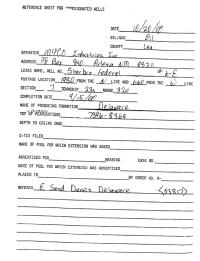 REFERENCE SHEET FOR UNDESIGNATED WELLS
DATE 10/20/00
OIL/GAS Oil
COUNTY Lea
OPERATOR MYCO Industries Inc
ADDRESS PO Box 840 Artesia NM 88211
LEASE NAME, WELL NO. Sharbro Federal #
FOOTAGE LOCATION FROM THE N LINE AND 660 FROM THE W LINE
SECTION 7 TOWNSHIP 23s RANGE 32e
COMPLETION DATE
NAME OF PRODUCING FORMATION Delaware
TOP OF PERFORATIONS
DEPTH TO CASING SHOE
C-123 FILED
NAME OF POOL FOR WHICH EXTENSION WAS ASKED
ADVERTISED FOR HEARING CASE NO.
NAME OF POOL FOR WHICH EXTENSION WAS ADVERTISED
PLACED IN BY ORDER NO. R-
REMARKS E Sand Dunes Delaware